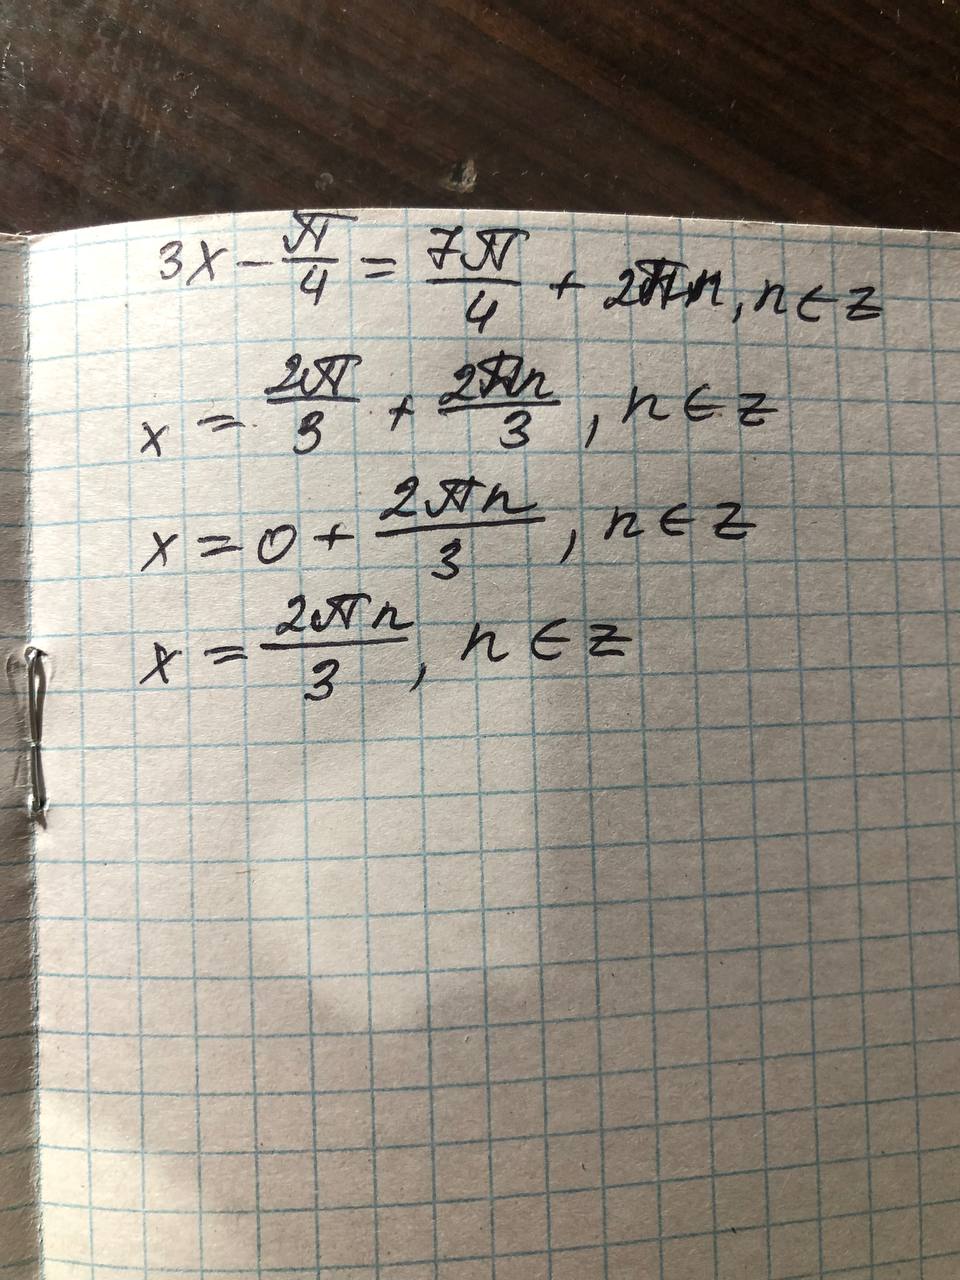 3x - π/4 = 7π/4 + 2πn, n ∈ z
x = 2π/3 + 2πn/3, n ∈ z
x = 0 + 2πn/3, n ∈ z
x = 2πn/3, n ∈ z